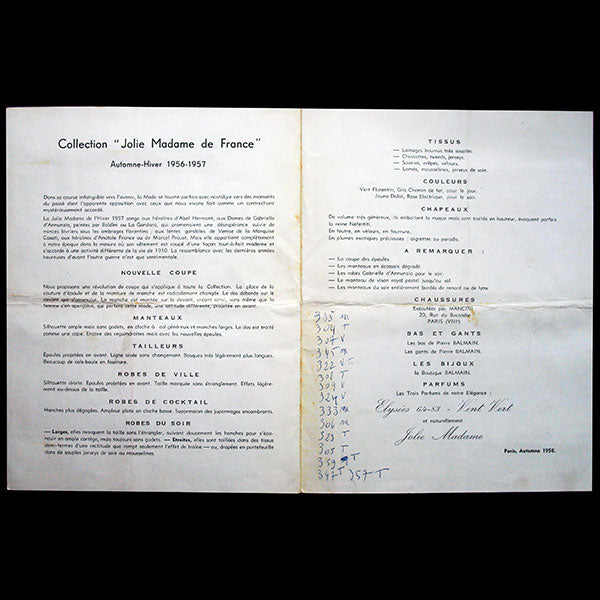 Collection "Jolie Madame de France"
Automne-Hiver 1956-1957
Dans sa course infatigable vers l'avenir, la Mode se tourne parfois avec nostalgie vers des moments
du passé dont l'apparente opposition avec ceux que nous vivons fait comme un contrechant
mystérieusement accordé.
La Jolie Madame de l'Hiver 1957 songe aux héroïnes d'Abel Hermant, aux Dames de Gabrielle
d'Annunzio, peintes par Boldini ou La Gandara, qui promenaient une désespérance suivie de
minces lévriers sous les ombrages florentins : aux lentes gondoles de Venise de la Marquise
Casati, aux héroïnes d'Anatole France ou de Marcel Proust. Mais elle appartient complètement
à notre époque dans la mesure où son vêtement est coupé d'une façon tout-à-fait moderne et
s'accorde à une activité différente de la vie de 1910. La ressemblance avec les dernières années
heureuses d'avant l'autre guerre n'est que sentimentale.
NOUVELLE COUPE
Nous proposons une révolution de coupe qui s'applique à toute la Collection. La place de la
couture d'épaule et de la monture de manche est radicalement changée. Le dos déborde sur le
devant qui s'amenuise. La manche est montée sur le devant, créant ainsi, sans même que la
femme s'en aperçoive, qui portera cette mode, une attitude différente, projetée en avant.
MANTEAUX
Silhouette ample mais sans godets, en cloche à col généreux et manches larges. Le dos est traité
comme une cape. Encore des reguindroires mais avec les nouvelles épaules.
TAILLEURS
Epaules projetées en avant. Ligne aisée sans changement. Basques très légèrement plus longues.
Beaucoup de cols-boule en fourrure.
ROBES DE VILLE
Silhouette droite. Epaules projetées en avant. Taille marquée sans étranglement. Effets légère-
ment au-dessus de la taille.
ROBES DE COCKTAIL
Hanches plus dégagées. Ampleur plate en cloche basse. Suppression des juponnages encombrants.
ROBES DU SOIR
— Larges, elles marquent la taille sans l'étrangler, suivant doucement les hanches pour s'épa-
nouir en ample cortège, mais toujours sans godets. — Étroites, elles sont taillées dans des tissus
demi-fermes d'une rectitude que rompt seulement l'effet de traîne — ou, drapées en portefeuille
dans de souples jerseys de soie ou mousselines.
TISSUS
— Lainages bourrus très souples.
— Cheviottes, tweeds, jerseys.
— Soieries, crêpes, velours.
— Lamés, mousselines, jerseys de soie.
COULEURS
Vert Florentin, Gris Chemin de fer, pour le jour.
Jaune Dolol, Rose Electrique, pour le soir.
CHAPEAUX
De volume très généreux, ils emboîtent la nuque mais sont traités en hauteur, évoquant parfois
la reine Nefertiti.
En feutre, en velours, en fourrure.
En plumes exotiques précieuses : aigrettes ou paradis.
A REMARQUER :
— La coupe des épaules.
— Les manteaux en écossais dégradé.
— Les robes Gabrielle d'Annunzio pour le soir.
— Le manteau de vison royal pastel jusqu'au sol.
— Les manteaux du soir entièrement bordés de renard ou de lynx.
CHAUSSURES
Exécutées par MANCINI,
20, Rue du Boccador
PARIS (VIIIe)
BAS ET GANTS
Les bas de Pierre BALMAIN,
Les gants de Pierre BALMAIN.
LES BIJOUX
la Boutique BALMAIN.
PARFUMS
Les Trois Parfums de notre Elégance :
Elysées 64-83 - Vent Vert
et naturellement
Jolie Madame
Paris, Automne 1956.
335 M
304 T
307 V
345 M
322 V.T
301 T
309 V
324 V
333 M
306 M
323 T
305 T
359 T
347 T 357 T